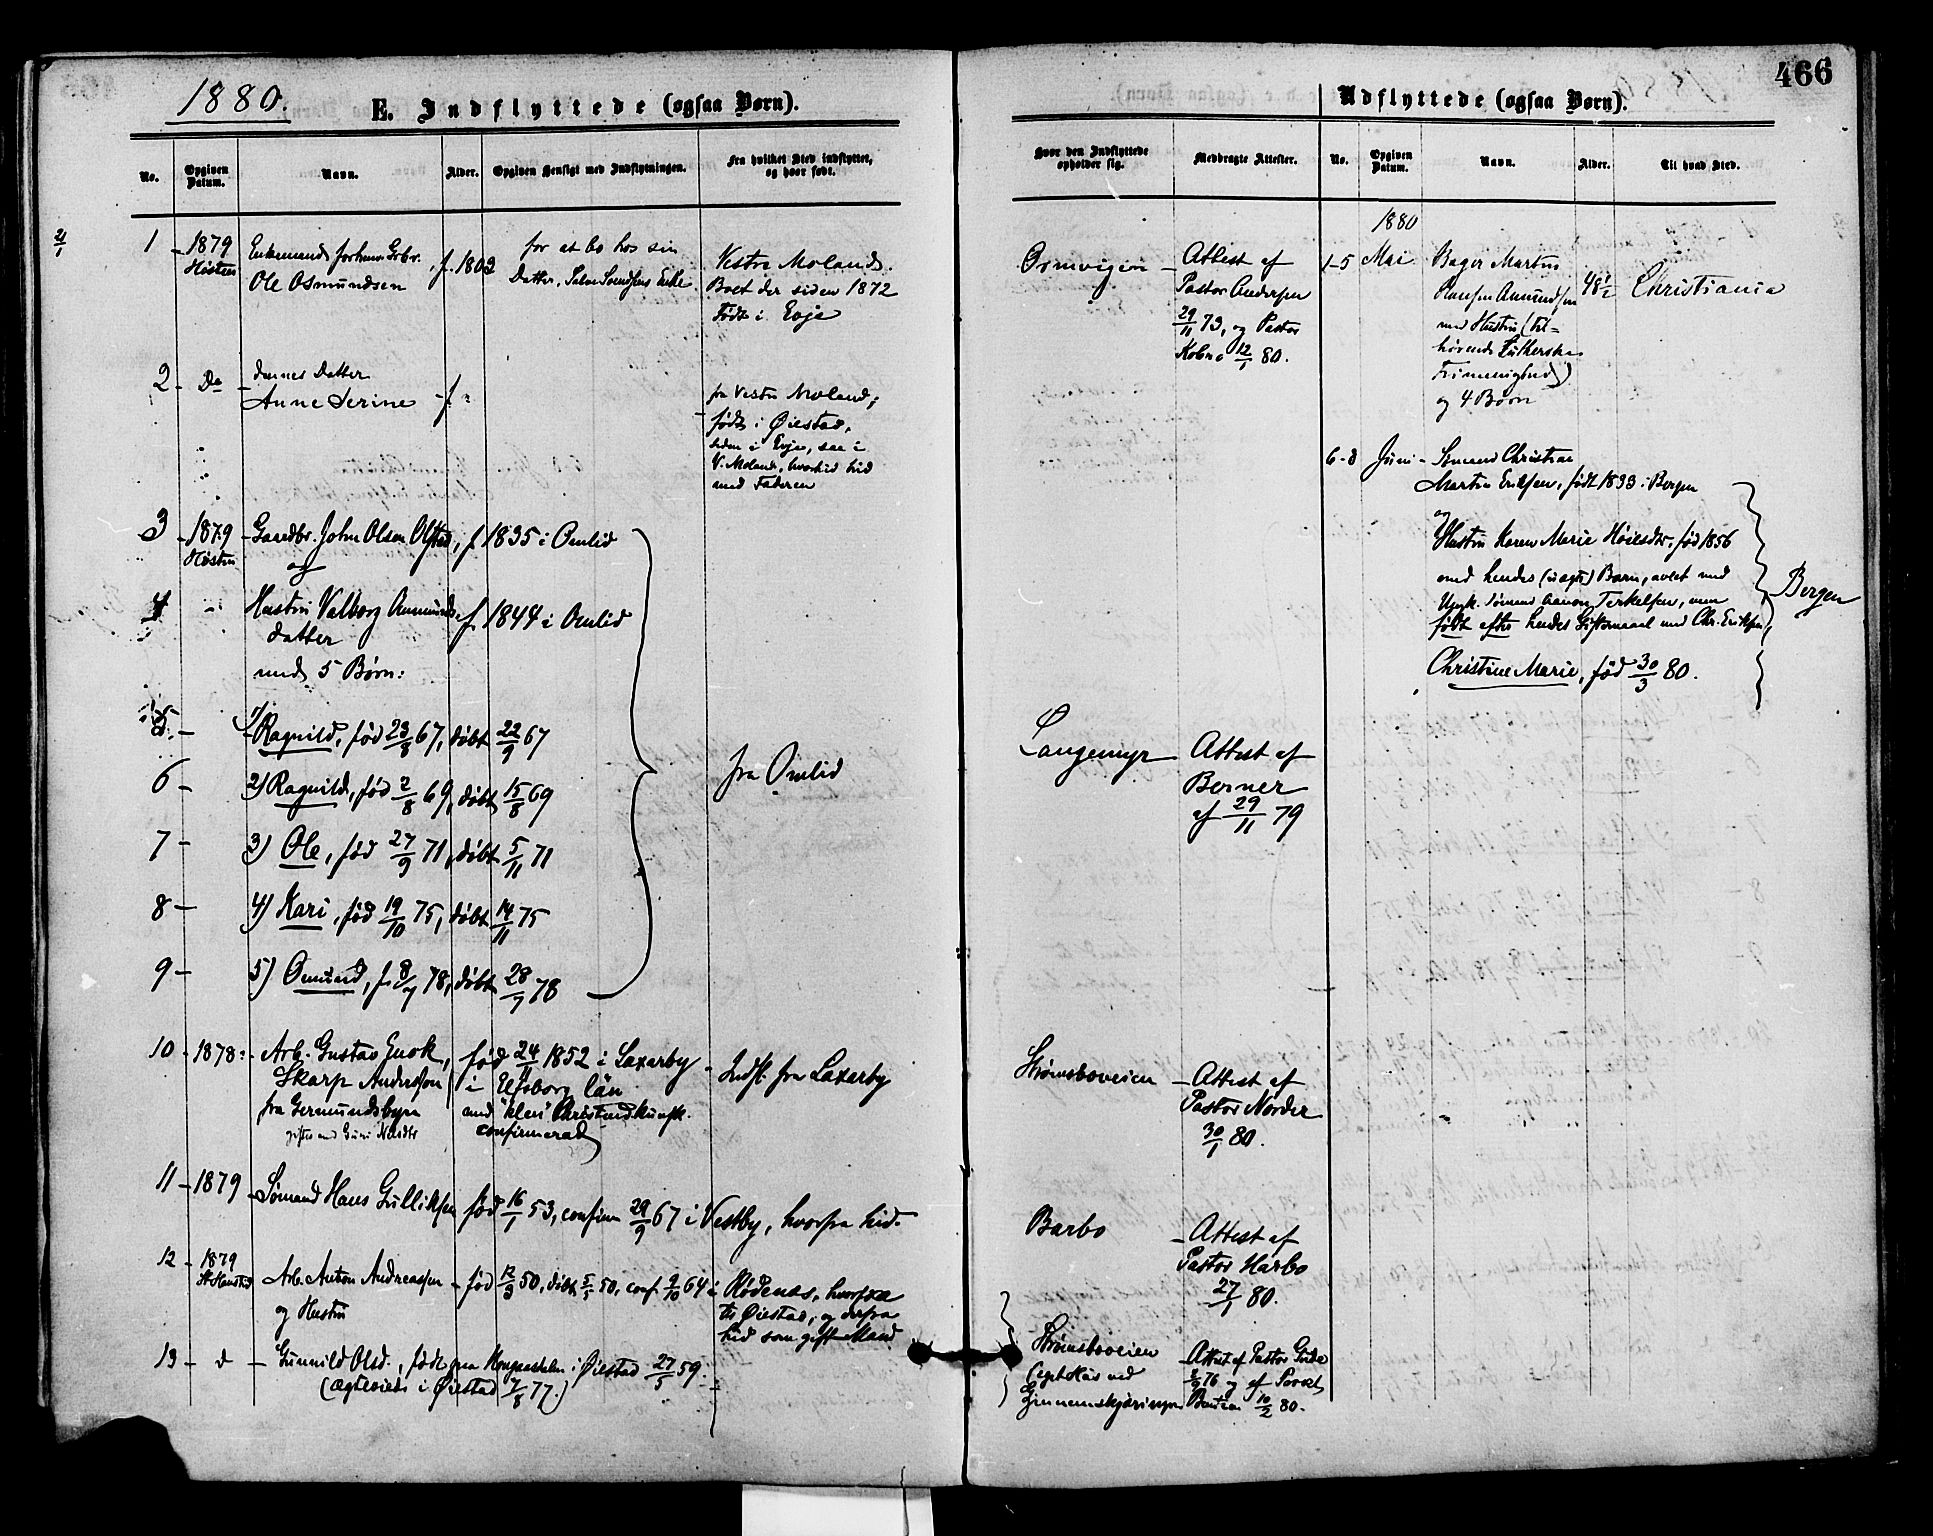 466
1880.
E. Indflyttede (ogsaa Børn).
No.
Opgiven Datum.
Navn.
Alder.
Opgiven Hensigt med Indflytningen.
Fra hvilket Sted indflyttet, og hvor født.
Hvor den Indflyttede opholder sig.
Medbragte Attester.
21/1
1 - 1879 Høsten
Enkemand forhenv. Grbr.
Ole Osmundsen
f. 1802
for at bo hos sin
Datter, Enke
Vestre Moland.
Boet der siden 1872
Født i Evje
- Attest af
Pastor Andersen
29/11 73, og Pastor
12/1 80.
2 - Do - dennes Datter
Anne Serine - f.
fra Vestre Moland,
født i Øiestad,
siden i Evje, saa i
V. Moland, hvorfra hid
med Faderen
3 - 1879 Høsten - Gaardbr. John Olsen, f. 1835 i Omlid
og
4 - Hustru Valborg Aanunds
datter f. 1844 i Omlid
med 5 Børn:
5 - 1) Ragnild, fød 23/8 67, døbt 22/9 67
6 - 2) Ragnild, fød 2/8 69, døbt 15/8 69
7 - 3) Ole, fød 27/9 71, døbt 5/11 71
8 - 4) Kari, fød 19/10 75, døbt 14/11 75
9 - 5) Omund, f. 8/7 78, døbt 28/7 78
fra Omlid
Langemyr - Attest af
Berner
af 29/11 79
10 - 1878: - Arb. Gustav Enok,
Skarp Andersson
fra Germundsbyn
gift med
fød 24/11 1852 i Laxarby
i Elfsborg län
med "klen" Christendkunsk.
confirmerad
- Indfl. fra Laxarby
Strømsboveien - Attest af
Pastor Norder
30/1 80.
11 - 1879 - Sømand Hans Gulliksen fød 16/1 53, confirm 29/9 67 i Vestby, hvorfra hid.
Barbo - Attest af
Pastor Harbo
27/1 80.
12 - 1879
- Arb. Anton Andreassen - fød 12/3 50, døbt 5/5 50, conf. 9/10 64 i Rødenes, hvorfra
og Hustru
til Øiestad, og derfra
hid som gift Mand
13 - d - Gunnild Olsd., født paa i Øiestad 27/5 59.
(ægteviede i Øiestad 7/8 77.)
Strømsboveien
ved
Gjennemskjæringen
- Attest af Pastor
76 og af
10/2 80.
Udflyttede (ogsaa Børn).
No.
Opgiven Datum.
Navn.
Alder.
Til hvad Sted.
1880
1-5 Mai
Bager Martin
Hansen Amundsen
med Hustru (til=
hørende Lutherske
Frimenighed)
og 4 Børn
48 1/2
Christiania
6-8 Juni - Sømand Christian
Martin Eriksen, født 1833 i Bergen
og
Hustru Karen Marie, fød 1856
med hendes (uægte) Barn, avlet med
Ugift Sømand Aanon Terkelsen, men
født efter hendes Giftermaal med Chr. Eriksen,
Christine Marie, fød 30/3 80.
Bergen